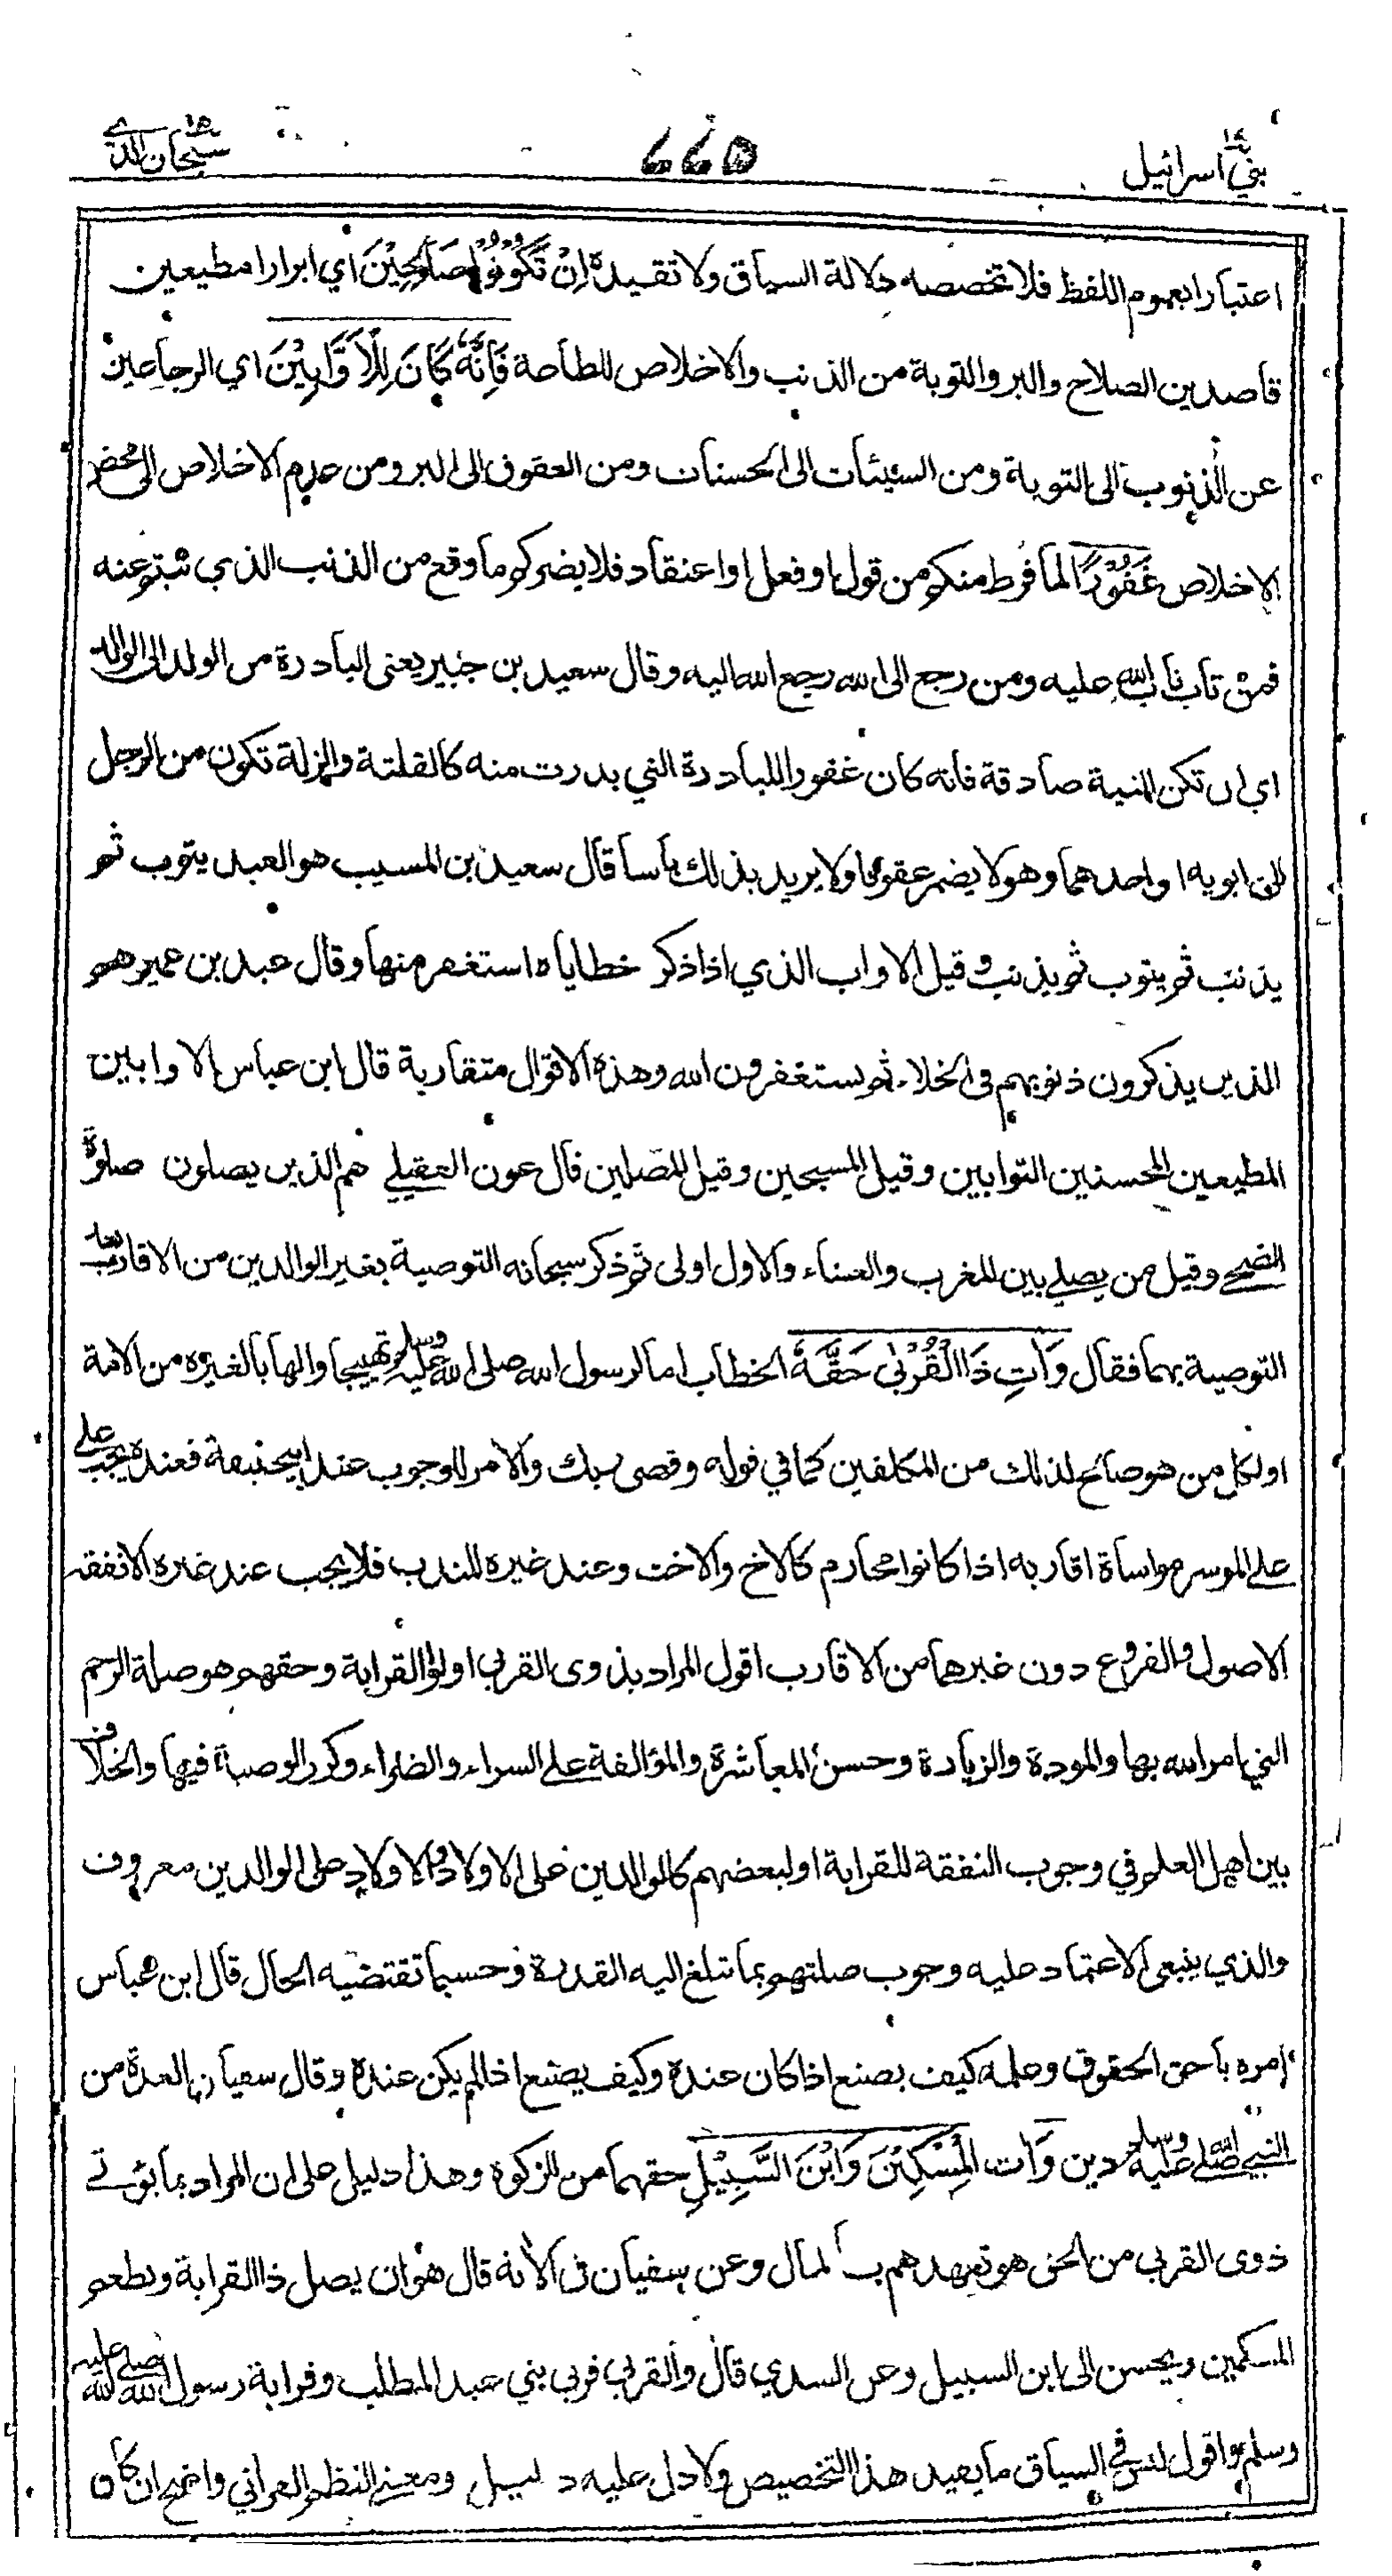 بني اسرائيل ١٧
٥٦٦
سبحان الذي ١٥
اعتبارا بعموم اللفظ فلا تخصصه دلالة السياق ولا تقيده اِنْ تَكُوْنُوْا صَالِحِيْنَ اي ابرارا مطيعين
قاصدين الصلاح والبر والتوبة من الذنب والاخلاص للطاعة فَاِنَّهٗ كَانَ لِلْاَوَّابِيْنَ اي الرجاعين
عن الذنوب الى التوبة ومن السيئات الى الحسنات ومن العقوق الى البر ومن عدم الاخلاص الى محض
الاخلاص غَفُوْرًا لما فرط منكم من قول او فعل او اعتقاد فلا يضركم ما وقع من الذنب الذي تبتم عنه
فمن تاب تاب الله عليه ومن رجع الى الله رجع الله اليه وقال سعيد بن جبير يعنى البادرة من الولد الى الوالد
اي ان تكن النية صادقة فانه كان غفورا للبادرة التي بدرت منه كالفلتة والزلة تكون من الرجل
الى ابويه او احدهما وهو لا يضمر عقوقا ولا يريد بذلك باسا قال سعيد بن المسيب هو العبد يتوب ثم
يذنب ثم يتوب ثم يذنب وقيل الاواب الذي اذا ذكر خطاياه استغفر منها وقال عبيد بن عمير هم
الذين يذكرون ذنوبهم في الخلاء ثم يستغفرون الله وهذه الاقوال متقاربة قال ابن عباس الاوابين
المطيعين المحسنين التوابين وقيل المسبحين وقيل المصلين قال عون العقيلي هم الذين يصلون صلوة
الضحى وقيل من يصلي بين المغرب والعشاء والاول اولى ثم ذكر سبحانه التوصية بغير الوالدين من الاقارب بعد
التوصية بهما فقال وَاٰتِ ذَا الْقُرْبٰى حَقَّهٗ الخطاب اما لرسول الله صلى الله عليه وسلم تهييجا والهابا لغيره من الامة
او لكل من هو صالح لذلك من المكلفين كما في قوله وقضى ربك والامر للوجوب عند ابيحنيفة فعنده يجب على
على الموسر مواساة اقاربه اذا كانوا محارم كالاخ والاخت وعند غيره للندب فلا يجب عند غيره الا نفقة
الاصول والفروع دون غيرهما من الاقارب اقول المراد بذوى القربى اولو القرابة وحقهم هو صلة الرحم
التي امر الله بها والمودة والزيارة وحسن المعاشرة والمؤالفة على السراء والضراء وكرر الوصية فيها والخلاف
بين اهل العلم في وجوب النفقة للقرابة او لبعضهم كالوالدين على الاولاد والاولاد على الوالدين معروف
والذي ينبغى الاعتماد عليه وجوب صلتهم بما تبلغ اليه القدرة وحسبما تقتضيه الحال قال ابن عباس
امره باحق الحقوق وعلمه كيف يصنع اذا كان عنده وكيف يصنع اذا لم يكن عنده وقال سفيان العدة من
النبي صلى الله عليه وسلم دين وَاٰت الْمِسْكِيْنَ وَابْنَ السَّبِيْلِ حقهما من الزكوة وهذا دليل على ان المراد بما يؤتى
ذوى القربى من الحق هو تعهدهم بالمال وعن سفيان في الاٰية قال هو ان يصل ذا القرابة ويطعم
المسكين ويحسن الى ابن السبيل وعن السدي قال والقربى قربى بني عبد المطلب وقرابة رسول الله صلى الله عليه
وسلم واقول ليس في السياق ما يفيد هذا التخصيص ولا دل عليه دليل ومعنى النظم القراٰني واضح ان كان